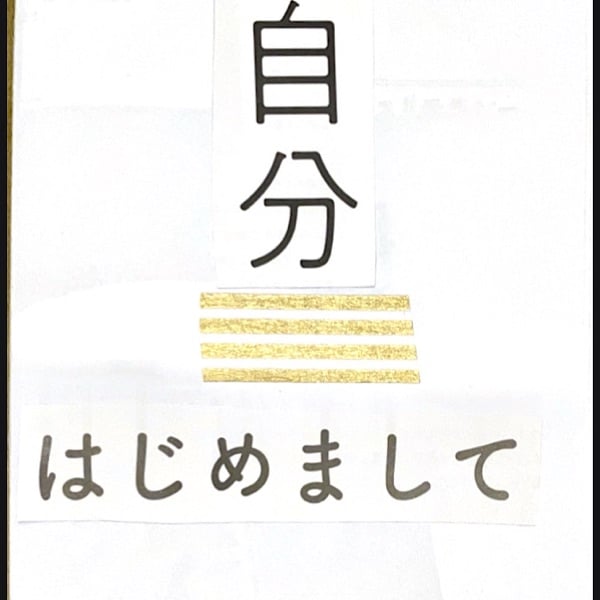 自分
はじめまして